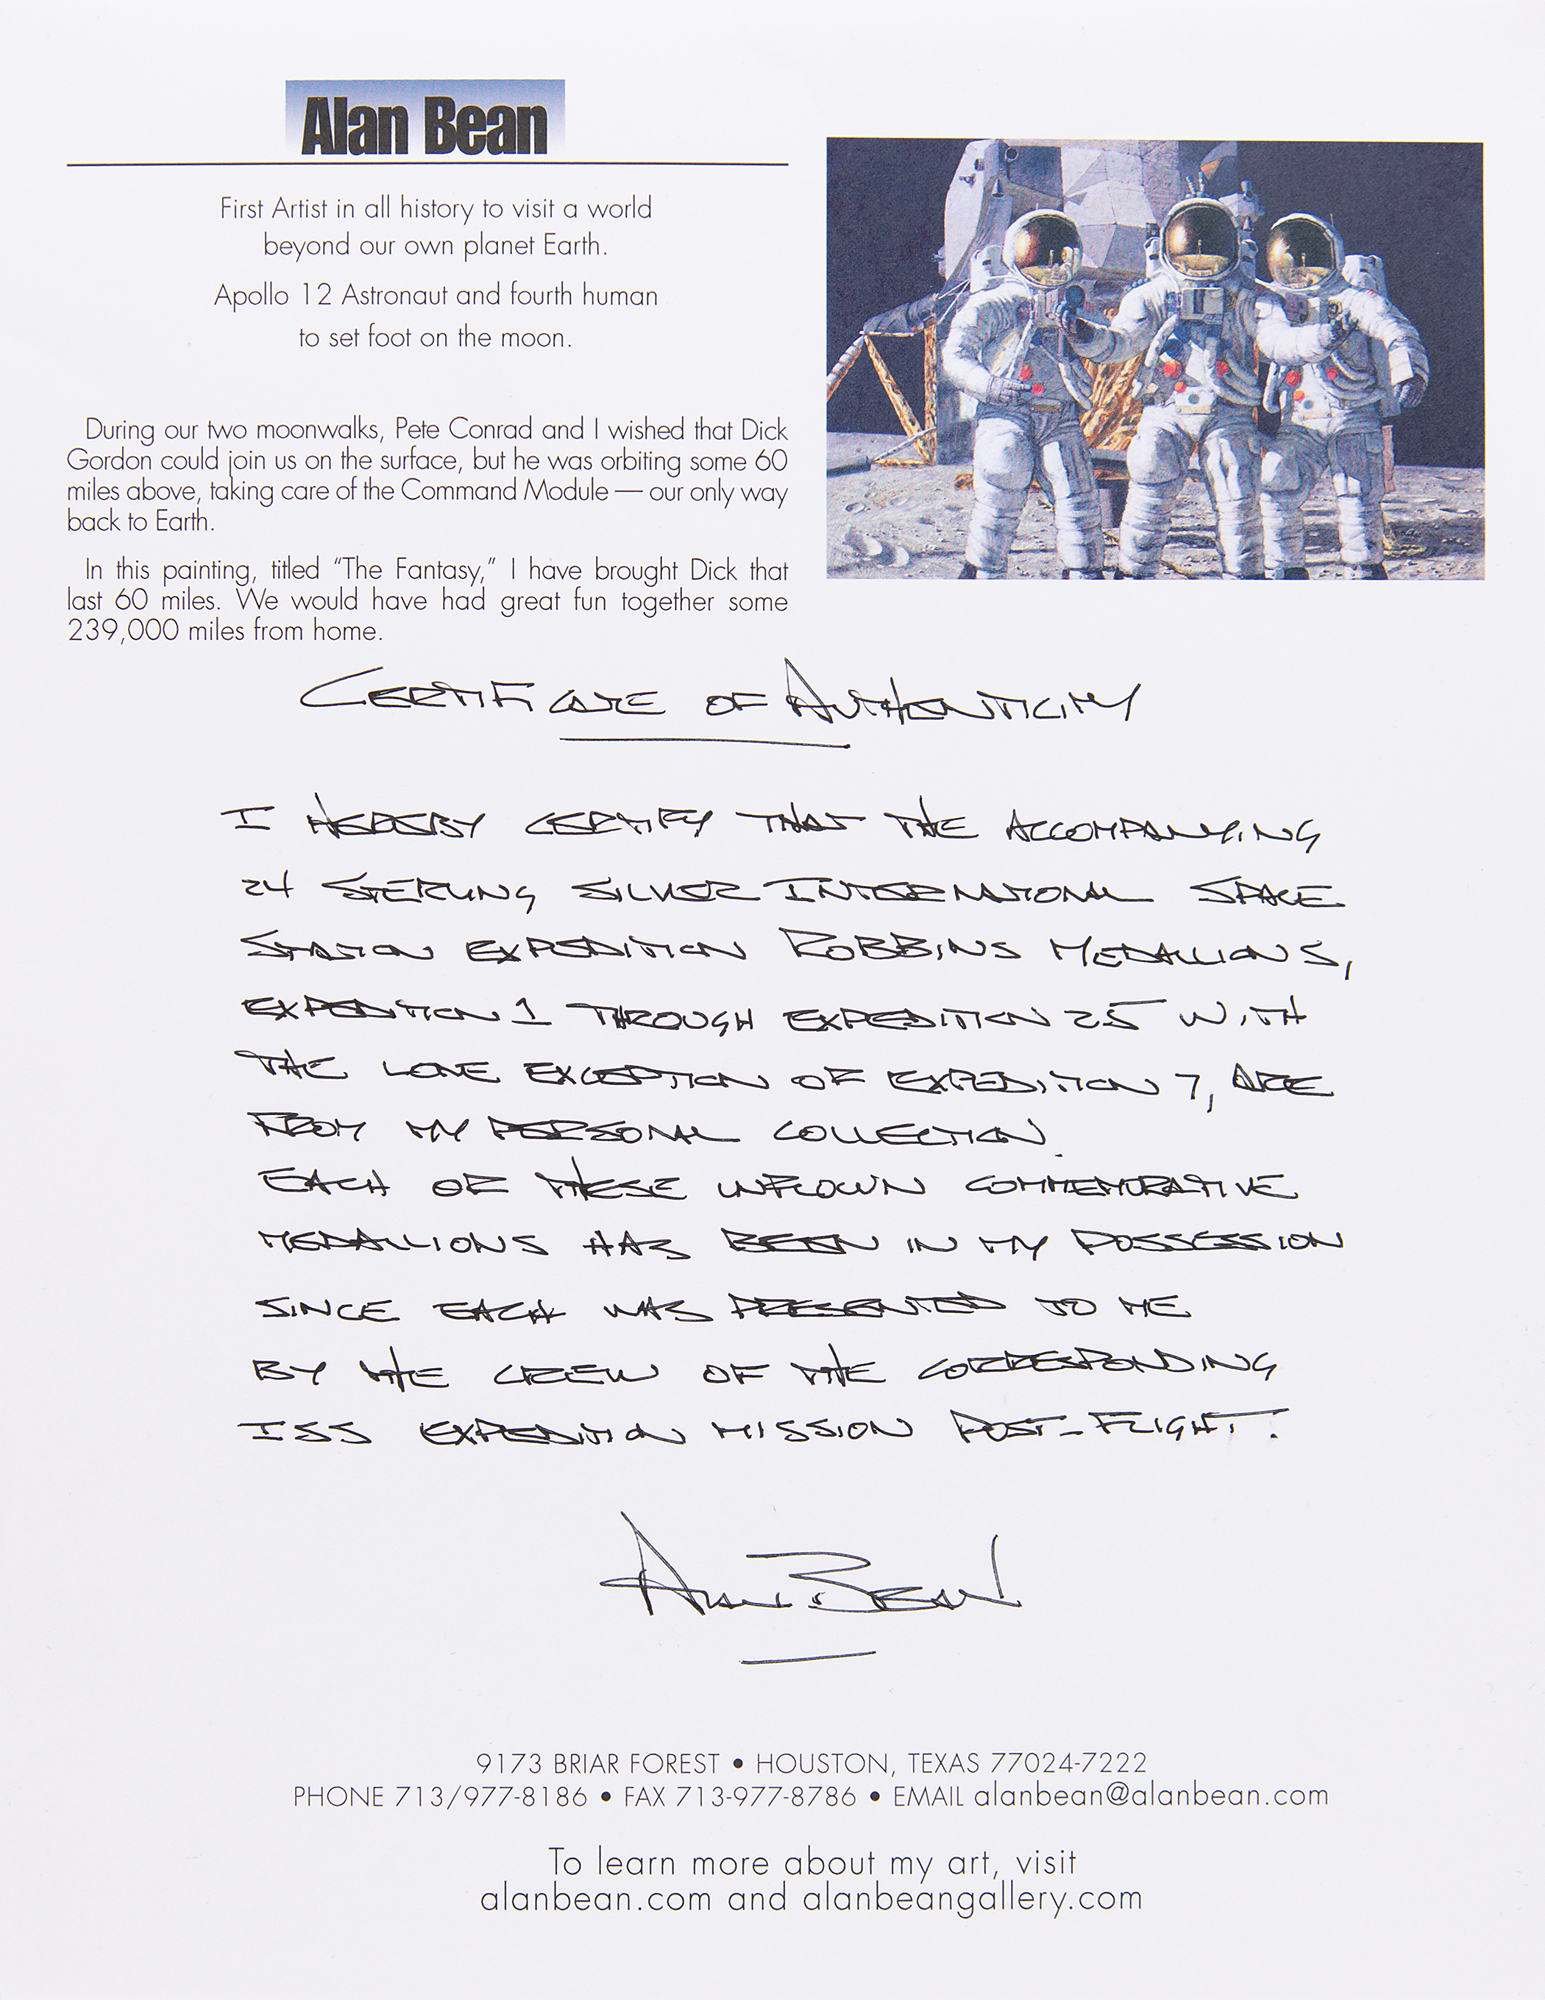 Alan Bean
First Artist in all history to visit a world
beyond our own planet Earth.
Apollo 12 Astronaut and fourth human
to set foot on the moon.
During our two moonwalks, Pete Conrad and I wished that Dick
Gordon could join us on the surface, but he was orbiting some 60
miles above, taking care of the Command Module — our only way
back to Earth.
In this painting, titled “The Fantasy,” I have brought Dick that
last 60 miles. We would have had great fun together some
239,000 miles from home.
CERTIFICATE OF AUTHENTICITY
I HEREBY CERTIFY THAT THE ACCOMPANYING
24 STERLING SILVER INTERNATIONAL SPACE
STATION EXPEDITION ROBBINS MEDALLIONS,
EXPEDITION 1 THROUGH EXPEDITION 25 WITH
THE LONE EXCEPTION OF EXPEDITION 7, ARE
FROM MY PERSONAL COLLECTION.
EACH OF THESE UNFLOWN COMMEMORATIVE
MEDALLIONS HAS BEEN IN MY POSSESSION
SINCE EACH WAS PRESENTED TO ME
BY THE CREW OF THE CORRESPONDING
ISS EXPEDITION MISSION POST-FLIGHT.
ALAN BEAN
9173 BRIAR FOREST • HOUSTON, TEXAS 77024-7222
PHONE 713/977-8186 • FAX 713-977-8786 • EMAIL alanbean@alanbean.com
To learn more about my art, visit
alanbean.com and alanbeangallery.com